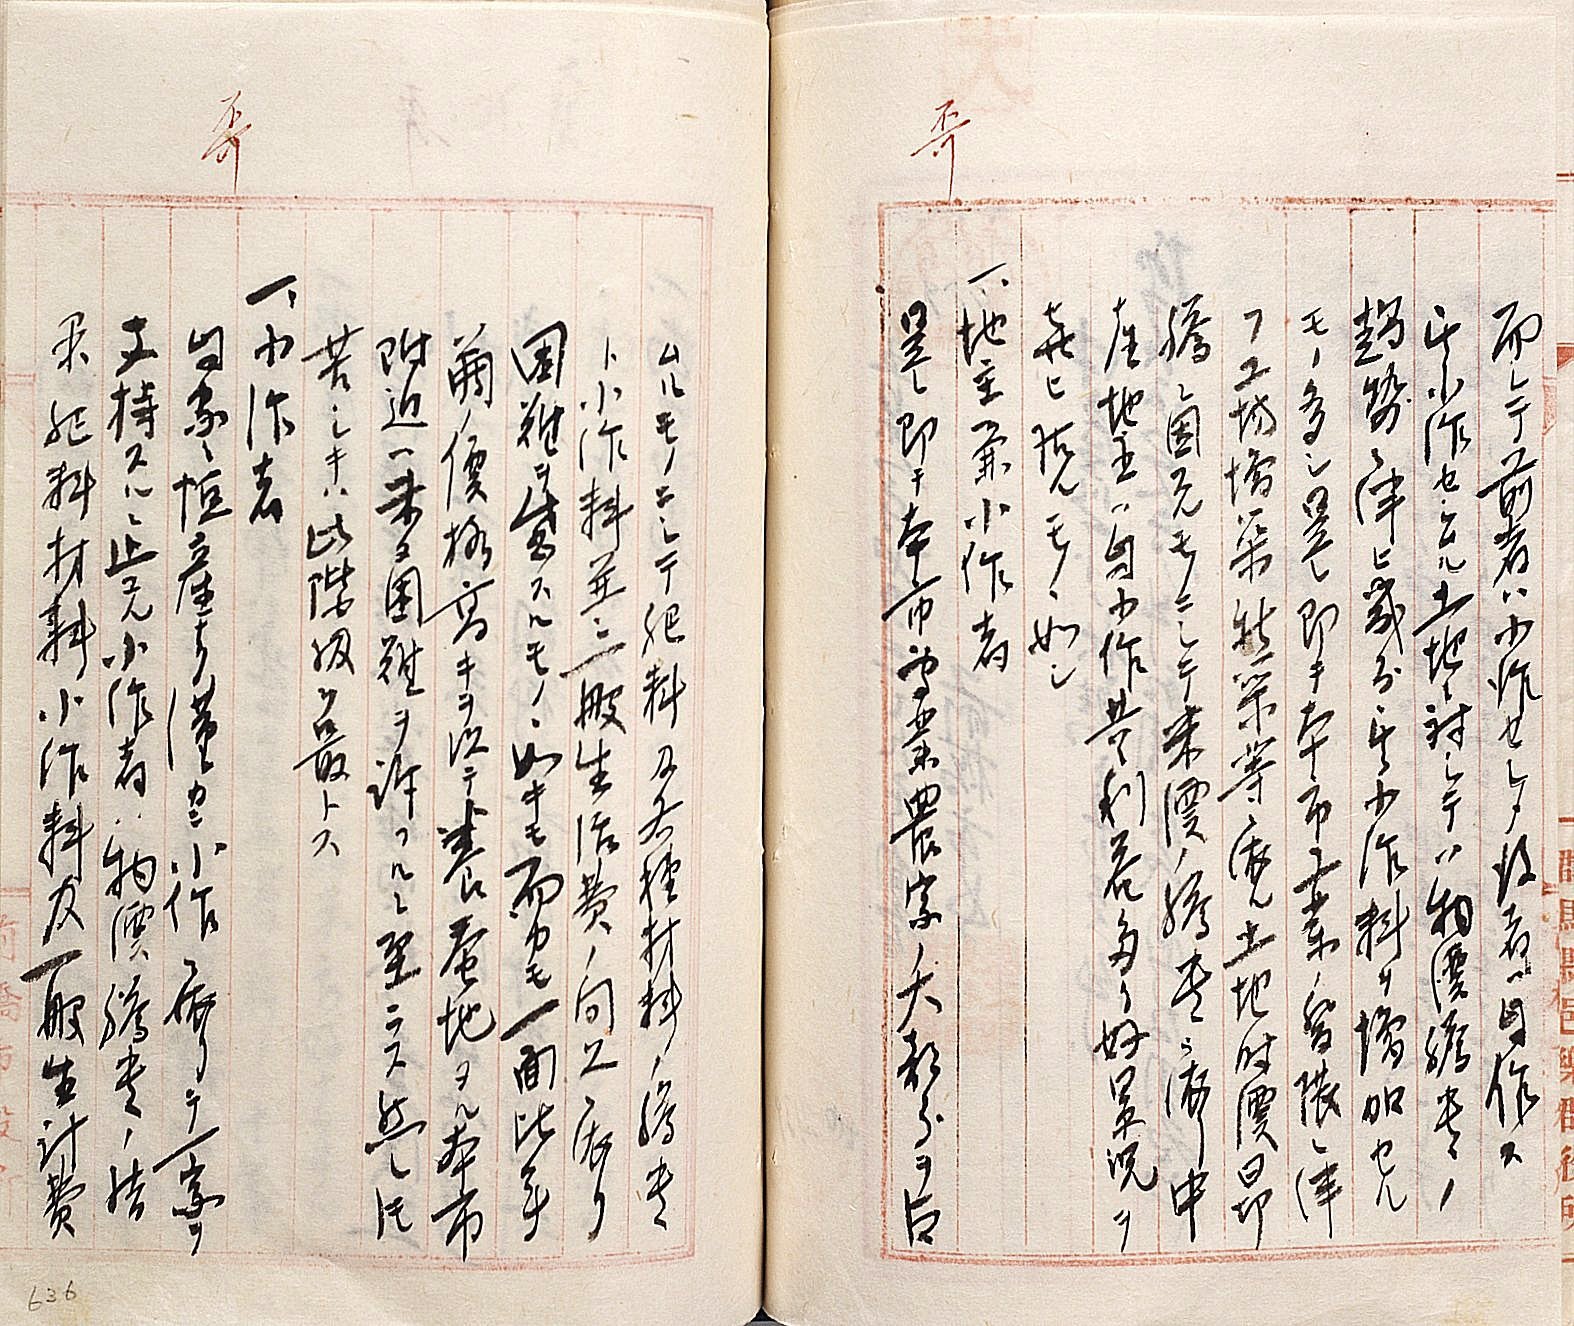 而シテ前者ハ小作セシメ後者ハ自作ス
其小作セシムル土地ニ対シテハ物價騰貴ノ
趨勢ニ伴ヒ幾分其小作料ヲ増加セル
モノ多シ是レ即チ本市工業ノ発展ニ伴
フ工場増築住宅新築等ニ依ル土地時價昂
騰ニ因ルモノニシテ米價ノ騰貴ニ依リ中
産地主ハ自小作共ニ利益多ク好景況ヲ
呈シ居ルモノヽ如シ
一、地主兼小作者
是レ即チ本市専業農家ノ大部分ヲ占
ムルモノニシテ肥料及各種材料ノ騰貴
ト小作料並ニ一般生活費ノ向上ニ依リ
困難ヲ感スルモノヽ如キモ而カモ一面比年
繭ノ價格高キヲ以テ養蚕地タル本市
附近ハ未タ困難ヲ訴フルニ至ラス然レトモ
苦シキハ此階級ヲ最トス
一、小作者
自家ニ恒産ナク僅カニ小作ニ依リテ一家ヲ
支持スルニ止マル小作者ハ物價騰貴ノ結
果肥料材料小作料及一般生計費
636